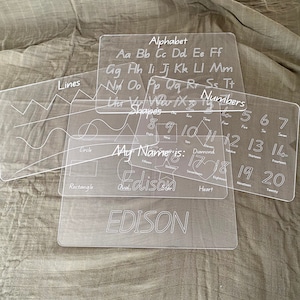 Alphabet
Aa Bb Cc Dd Ee Ff
Gg Hh Ii Jj Kk Ll Mm
Nn Oo Pp Qq Rr Ss Tt
Uu Vv Ww Xx Yy
Lines
Numbers
5 6 7
8 9 10 11 12 13 14
17 18 19 20
Shapes
Circle
Diamond
Rectangle
Oval
Heart
My Name is:
Edison
EDISON